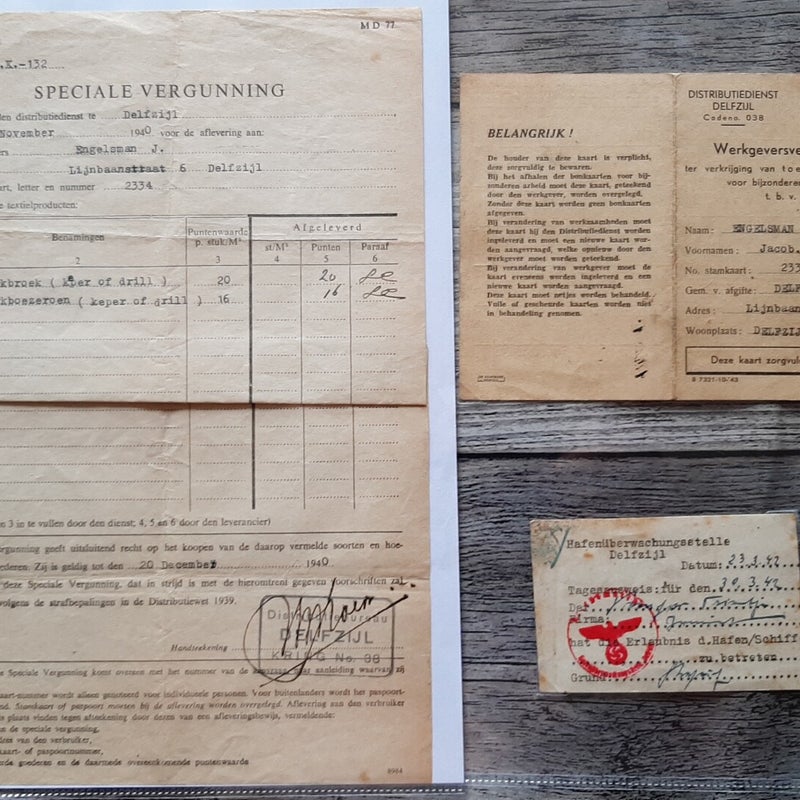 MD 77
.K.-132
SPECIALE VERGUNNING
den distributiedienst te Delfzijl
November 1940 voor de aflevering aan:
ers Engelsman J.
Lijnbaanstraat 6 Delfzijl
art, letter en nummer 2334
e textielproducten:
Benamingen
Puntenwaarde p. stuk/M¹
Afgeleverd
st/M¹ Punten Paraaf
2 3 4 5 6
kbroek ( keper of drill ) 20 20
kboezeroen ( keper of drill ) 16 16
n 3 in te vullen door den dienst; 4, 5 en 6 door den leverancier)
ergunning geeft uitsluitend recht op het koopen van de daarop vermelde soorten en hoe-
ederen. Zij is geldig tot den 20 December 1940
deze Speciale Vergunning, dat in strijd is met de hieromtrent gegeven voorschriften zal
volgens de strafbepalingen in de Distributiewet 1939.
Distributiebureau
DELFZIJL
KRING No. 38
Handteekening
e Speciale Vergunning komt overeen met het nummer van de aanvraag naar aanleiding waarvan zij
kaart-nummer wordt alleen genoteerd voor individueele personen. Voor buitenlanders wordt het paspoort-
d. Stamkaart of paspoort moeten bij de aflevering worden overgelegd. Aflevering aan den verbruiker
s plaats vinden tegen afteekening door dezen van een afleveringsbewijs, vermeldende:
n de speciale vergunning,
dres van den verbruiker,
kaart- of paspoortnummer,
erde goederen en de daarmede overeenkomende puntenwaarde
8984
BELANGRIJK !
De houder van deze kaart is verplicht,
deze zorgvuldig te bewaren.
Bij het afhalen der bonkaarten voor bij-
zonderen arbeid moet deze kaart, geteekend
door den werkgever, worden overgelegd.
Zonder deze kaart worden geen bonkaarten
afgegeven.
Bij verandering van werkzaamheden moet
deze kaart bij den Distributiedienst worden
ingeleverd en moet een nieuwe kaart wor-
den aangevraagd, welke opnieuw door den
werkgever moet worden geteekend.
Bij verandering van werkgever moet de
kaart eveneens worden ingeleverd en een
nieuwe kaart worden aangevraagd.
Deze kaart moet netjes worden behandeld.
Vuile of gescheurde kaarten worden niet
in behandeling genomen.
DISTRIBUTIEDIENST
DELFZIJL
Codeno. 038
Werkgeversve
ter verkrijging van toe
voor bijzondere
t. b. v.
Naam: ENGELSMAN
Voornamen: Jacob.
No. stamkaart: 233
Gem. v. afgifte: DELF
Adres: Lijnbaan
Woonplaats: DELFZIJ
Deze kaart zorgvul
B 7321-10/43
Hafenüberwachungsstelle
Delfzijl
Datum: 23.3.42
Tagesausweis für den 30.3.42
Der
Firma
hat die Erlaubnis d.Hafen/Schiff
zu betreten
Grund